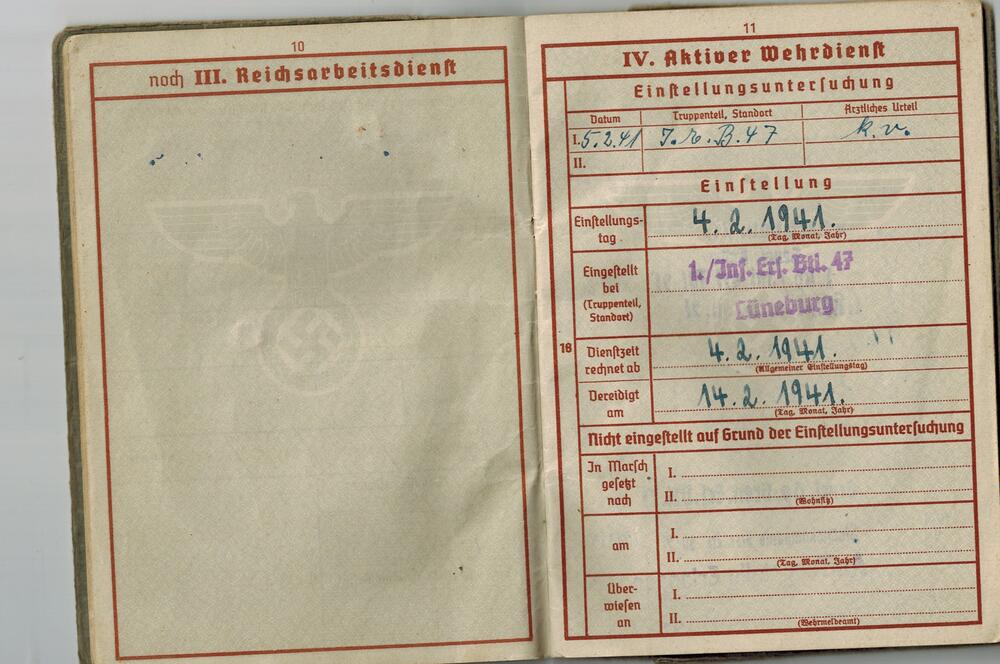 10
noch III. Reichsarbeitsdienst
11
IV. Aktiver Wehrdienst
Einstellungsuntersuchung
Datum Truppenteil, Standort Ärztliches Urteil
I. 5.2.41 J.E.B.47 k.v.
II.
Einstellung
Einstellungs-
tag
4. 2. 1941.
(Tag, Monat, Jahr)
Eingestellt
bei
(Truppenteil,
Standort)
1./Inf. Ers. Btl. 47
Lüneburg
18
Dienstzeit
rechnet ab
4. 2. 1941.
(Allgemeiner Einstellungstag)
Vereidigt
am
14. 2. 1941.
(Tag, Monat, Jahr)
Nicht eingestellt auf Grund der Einstellungsuntersuchung
In Marsch
gesetzt
nach
I.
II.
(Wohnsitz)
am
I.
II.
(Tag, Monat, Jahr)
Über-
wiesen
an
I.
II.
(Wehrmeldeamt)